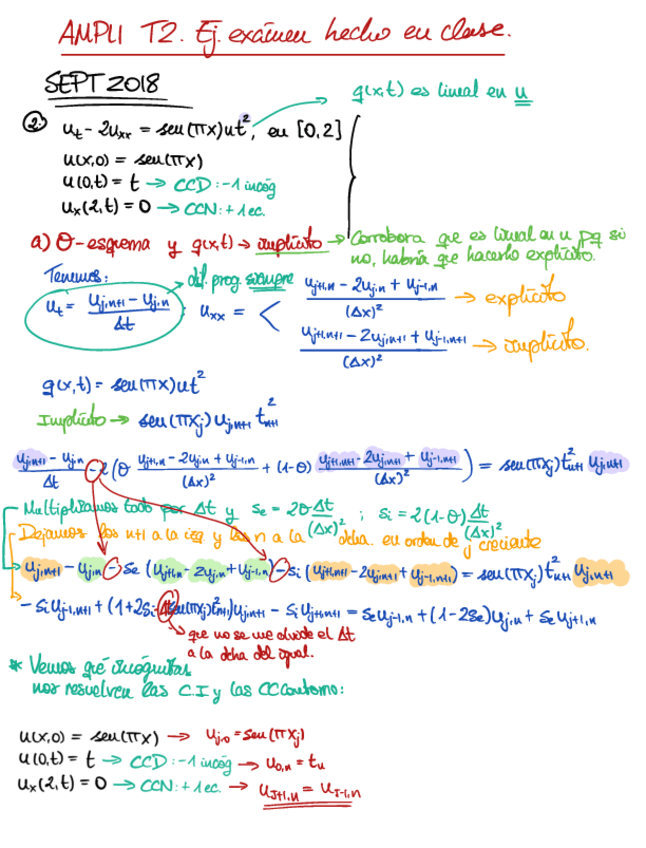 AMPLI T2. Ej. exámen hecho en clase.
SEPT 2018
g(x,t) es lineal en u
2. u_t - 2u_xx = sen(πx)ut², en [0,2]
u(x,0) = sen(πx)
u(0,t) = t → CCD: -1 incóg
u_x(2,t) = 0 → CCN: +1 ec.
a) θ-esquema y g(x,t) → implícito → Corrobora que es lineal en u pq si
no, habría que hacerlo explícito.
Tenemos: dif. prog. siempre
u_t = (u_{j,n+1} - u_{j,n})/Δt u_xx = < (u_{j+1,n} - 2u_{j,n} + u_{j-1,n})/(Δx)² → explícito
(u_{j+1,n+1} - 2u_{j,n+1} + u_{j-1,n+1})/(Δx)² → implícito.
g(x,t) = sen(πx)ut²
Implícito → sen(πx_j)u_{j,n+1} t²_{n+1}
(u_{j,n+1} - u_{j,n})/Δt - 2(θ (u_{j+1,n} - 2u_{j,n} + u_{j-1,n})/(Δx)² + (1-θ) (u_{j+1,n+1} - 2u_{j,n+1} + u_{j-1,n+1})/(Δx)²) = sen(πx_j)t²_{n+1} u_{j,n+1}
Multiplicamos todo por Δt y s_e = 2θ Δt/(Δx)² ; s_i = 2(1-θ) Δt/(Δx)²
Dejamos los n+1 a la izq. y los n a la dcha. en orden de j creciente
u_{j,n+1} - u_{j,n} - s_e (u_{j+1,n} - 2u_{j,n} + u_{j-1,n}) - s_i (u_{j+1,n+1} - 2u_{j,n+1} + u_{j-1,n+1}) = sen(πx_j)t²_{n+1} u_{j,n+1}
- s_i u_{j-1,n+1} + (1+2s_i - Δt sen(πx_j)t²_{n+1})u_{j,n+1} - s_i u_{j+1,n+1} = s_e u_{j-1,n} + (1-2s_e)u_{j,n} + s_e u_{j+1,n}
que no se me olvide el Δt
a la dcha del igual.
* Vemos qué incógnitas
nos resuelven las C.I y las CCcontorno:
u(x,0) = sen(πx) → u_{j,0} = sen(πx_j)
u(0,t) = t → CCD: -1 incóg → u_{0,n} = t_n
u_x(2,t) = 0 → CCN: +1 ec. → u_{J+1,n} = u_{J-1,n}